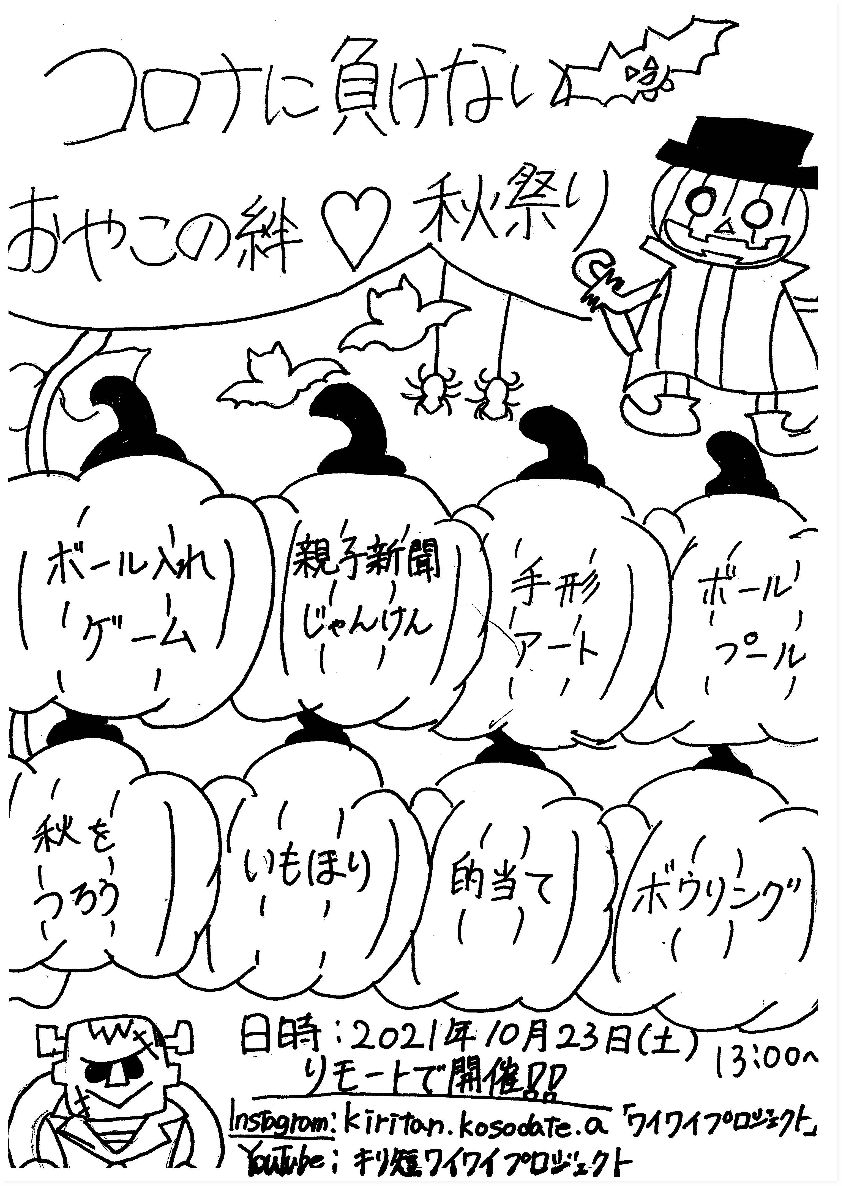 コロナに負けない
おやこの絆♡秋祭り
ボール入れ
ゲーム
親子新聞
じゃんけん
手形
アート
ボール
プール
秋を
つろう
いもほり
的当て
ボウリング
日時：2021年10月23日(土) 13:00~
リモートで開催!!
Instagram: kiritan.kosodate.a「ワイワイプロジェクト」
YouTube: キリ短ワイワイプロジェクト